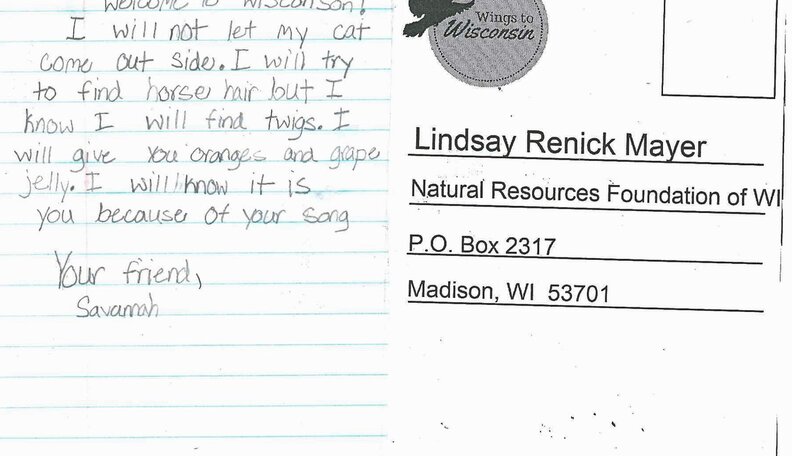 Welcome to Wisconson!
I will not let my cat
come out side. I will try
to find horse hair but I
know I will find twigs. I
will give you oranges and grape
jelly. I will know it is
you because of your song
Your friend,
Savannah
Wings to
Wisconsin
Lindsay Renick Mayer
Natural Resources Foundation of WI
P.O. Box 2317
Madison, WI 53701